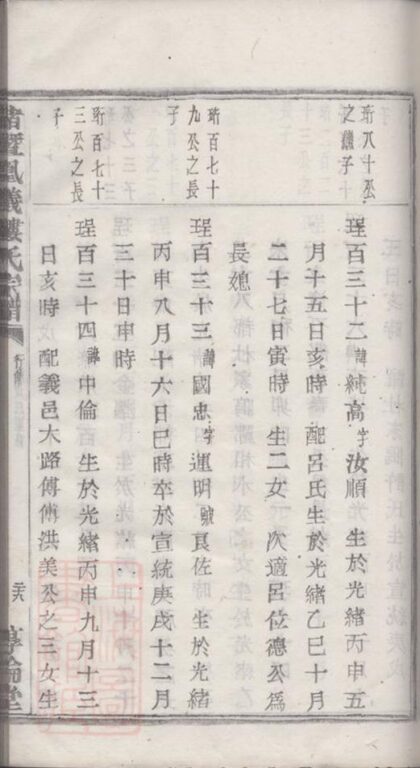 珩八十公
之󠄀繼子
珵百三十二諱純高字汝順 生於光緒丙申五
月十五日亥時 配呂氏生於光緒乙巳十月
二十七日寅時 生二女 次適呂位德公爲
長媳
珩百七十
九公之長
子
珵百三十三諱國忠字運明號良佐 生於光緒
丙申八月十六日巳時卒於宣統庚戌十二月
三十日申時
珩百七十
三公之長
子
珵百三十四諱中倫 生於光緒丙申九月十三
日亥時 配義邑大路傅傅洪美公之三女生
諸暨鳳儀樓氏宗譜
行傳
敦倫堂